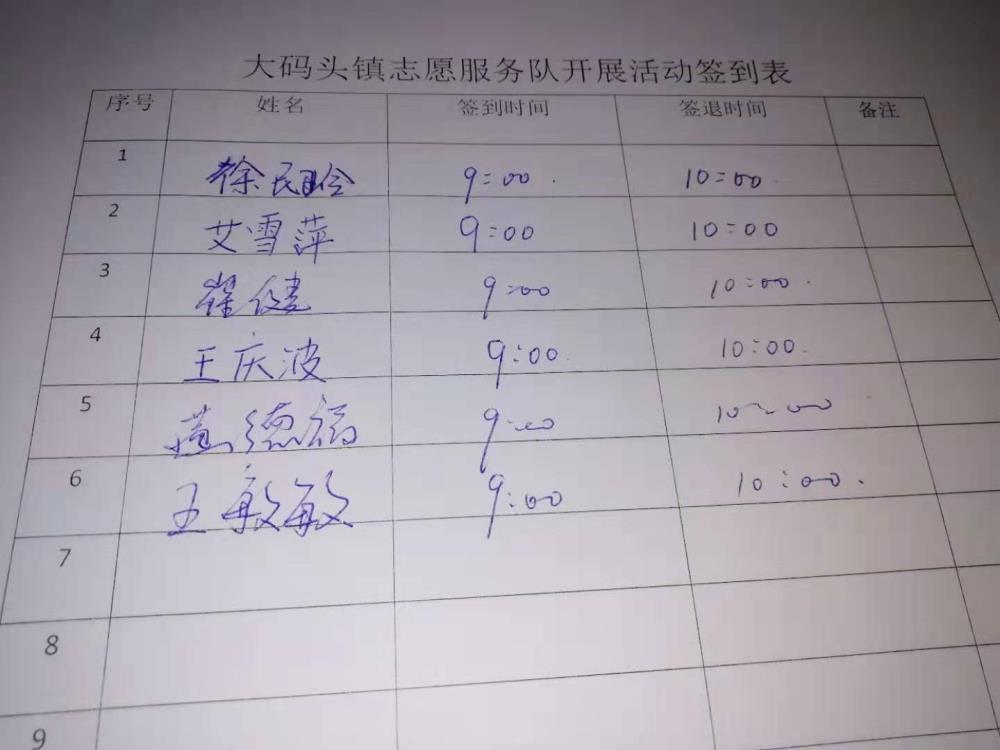 大码头镇志愿服务队开展活动签到表
序号 姓名 签到时间 签退时间 备注
1 徐民 9:00 10:00
2 艾雪萍 9:00 10:00
3 翟健 9:00 10:00
4 王庆波 9:00 10:00
5 德福 9:00 10:00
6 王敏敏 9:00 10:00
7
8
9